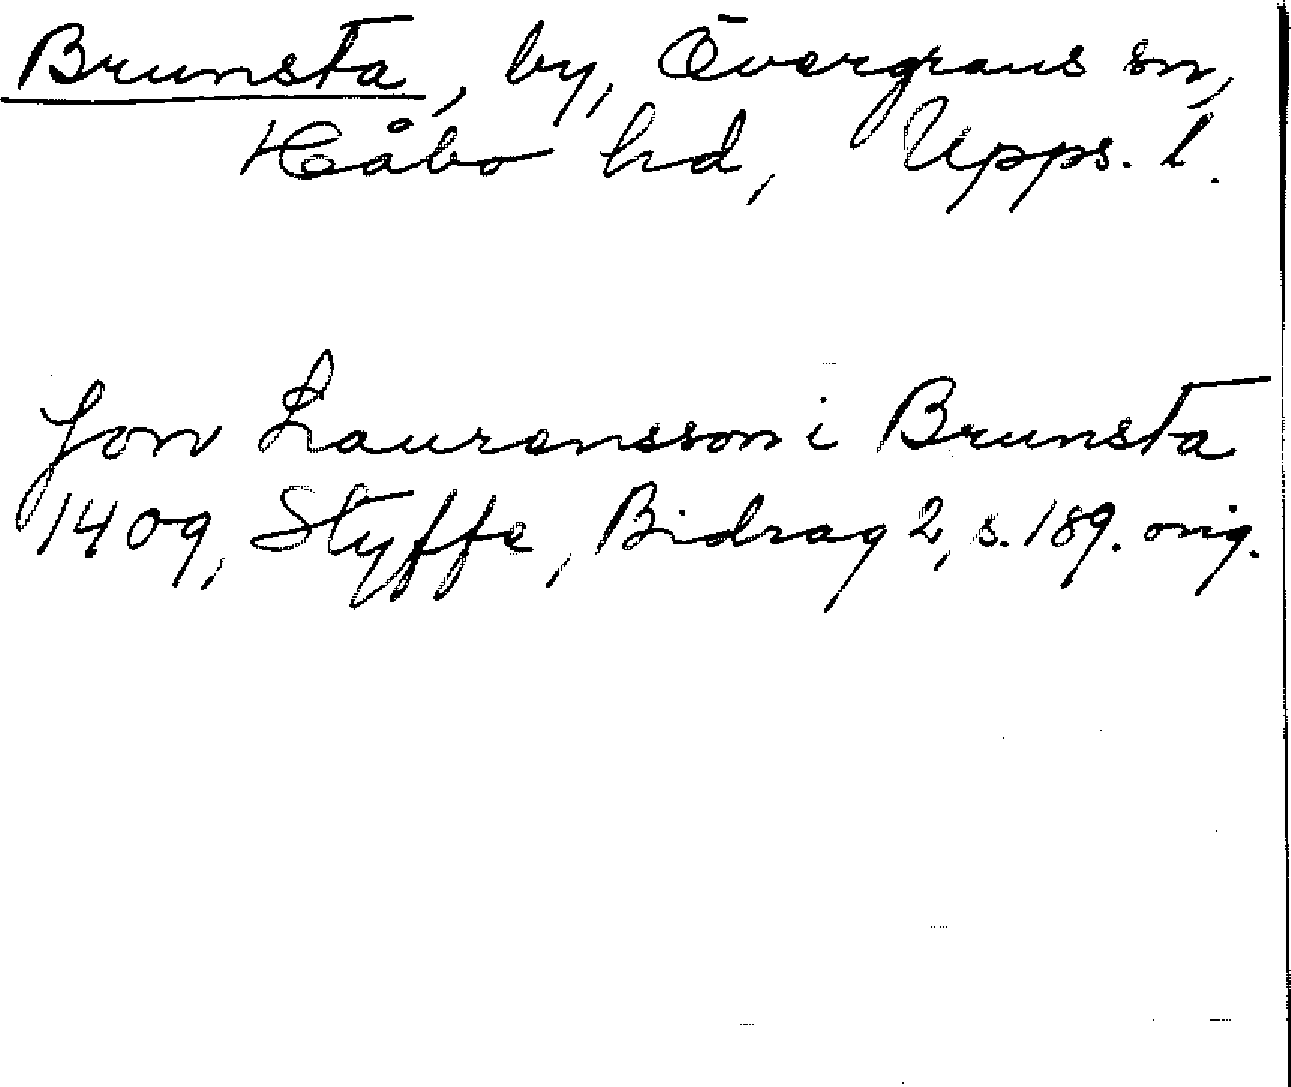 Brunsta, by, Övergrans sn,
Håbo hd, Upps. l.
Jon Laurensson i Brunsta
1409, Styffe, Bidrag 2, s. 189. orig.